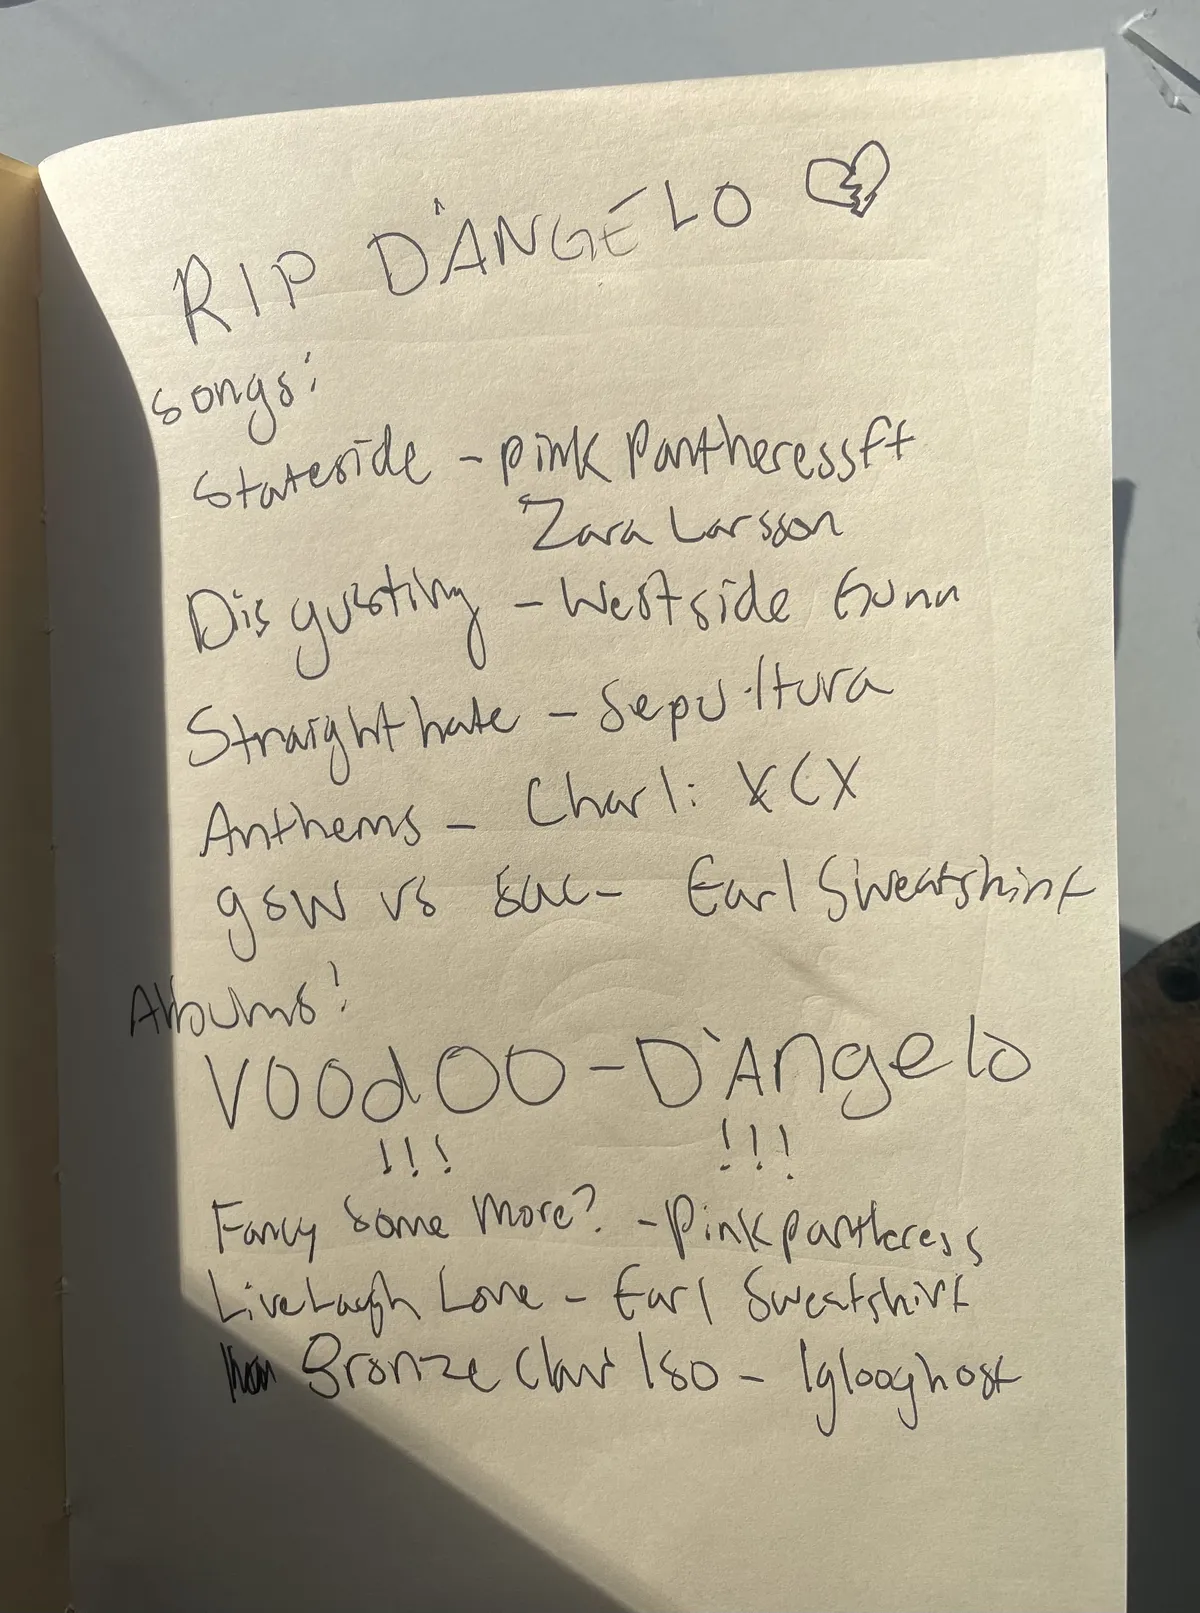 RIP D'ANGELO
Songs:
Stateside - Pink Pantheress ft
Zara Larsson
Disgusting - Westside Gunn
Straighthate - Sepultura
Anthems - Charli XCX
gsw vs sac - Earl Sweatshirt
Albums:
VOODOO - D'Angelo
!!! !!!
Fancy Some More? - Pinkpantheress
Live Laugh Love - Earl Sweatshirt
Bronze Claw Iso - Iglooghost